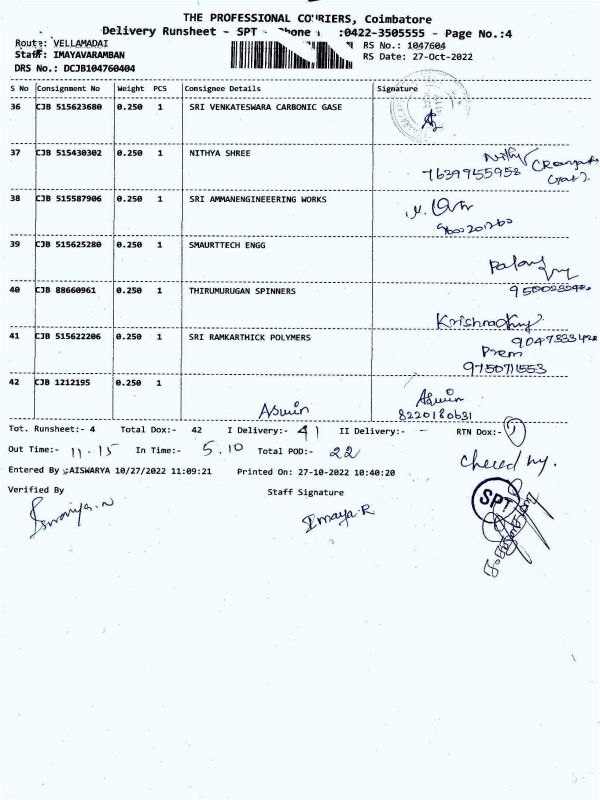 THE PROFESSIONAL COURIERS, Coimbatore
Delivery Runsheet - SPT - Phone :0422-3505555 - Page No.:4
Route: VELLAMADAI
RS No.: 1047604
Staff: IMAYAVARAMBAN
RS Date: 27-Oct-2022
DRS No.: DCJB104760404
S No Consignment No Weight PCS Consignee Details Signature
36 CJB 515623680 0.250 1 SRI VENKATESWARA CARBONIC GASE
37 CJB 515430302 0.250 1 NITHYA SHREE
Nithy
7639955958
38 CJB 515587906 0.250 1 SRI AMMANENGINEEERING WORKS
9600201260
39 CJB 515625280 0.250 1 SMAURTTECH ENGG
40 CJB 88660961 0.250 1 THIRUMURUGAN SPINNERS
41 CJB 515622206 0.250 1 SRI RAMKARTHICK POLYMERS
Prem
9750711553
42 CJB 1212195 0.250 1
Aswin Aswin
8220180631
Tot. Runsheet:- 4 Total Dox:- 42 I Delivery:- 41 II Delivery:- - RTN Dox:- 1
Out Time:- 11.15 In Time:- 5.10 Total POD:- 22
Entered By :AISWARYA 10/27/2022 11:09:21 Printed On: 27-10-2022 10:40:20
Verified By Staff Signature
SPT
Imaya.R